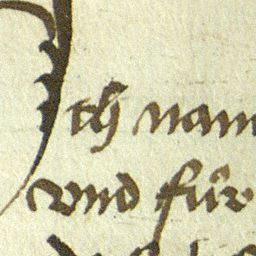 Ich nam
vnd für